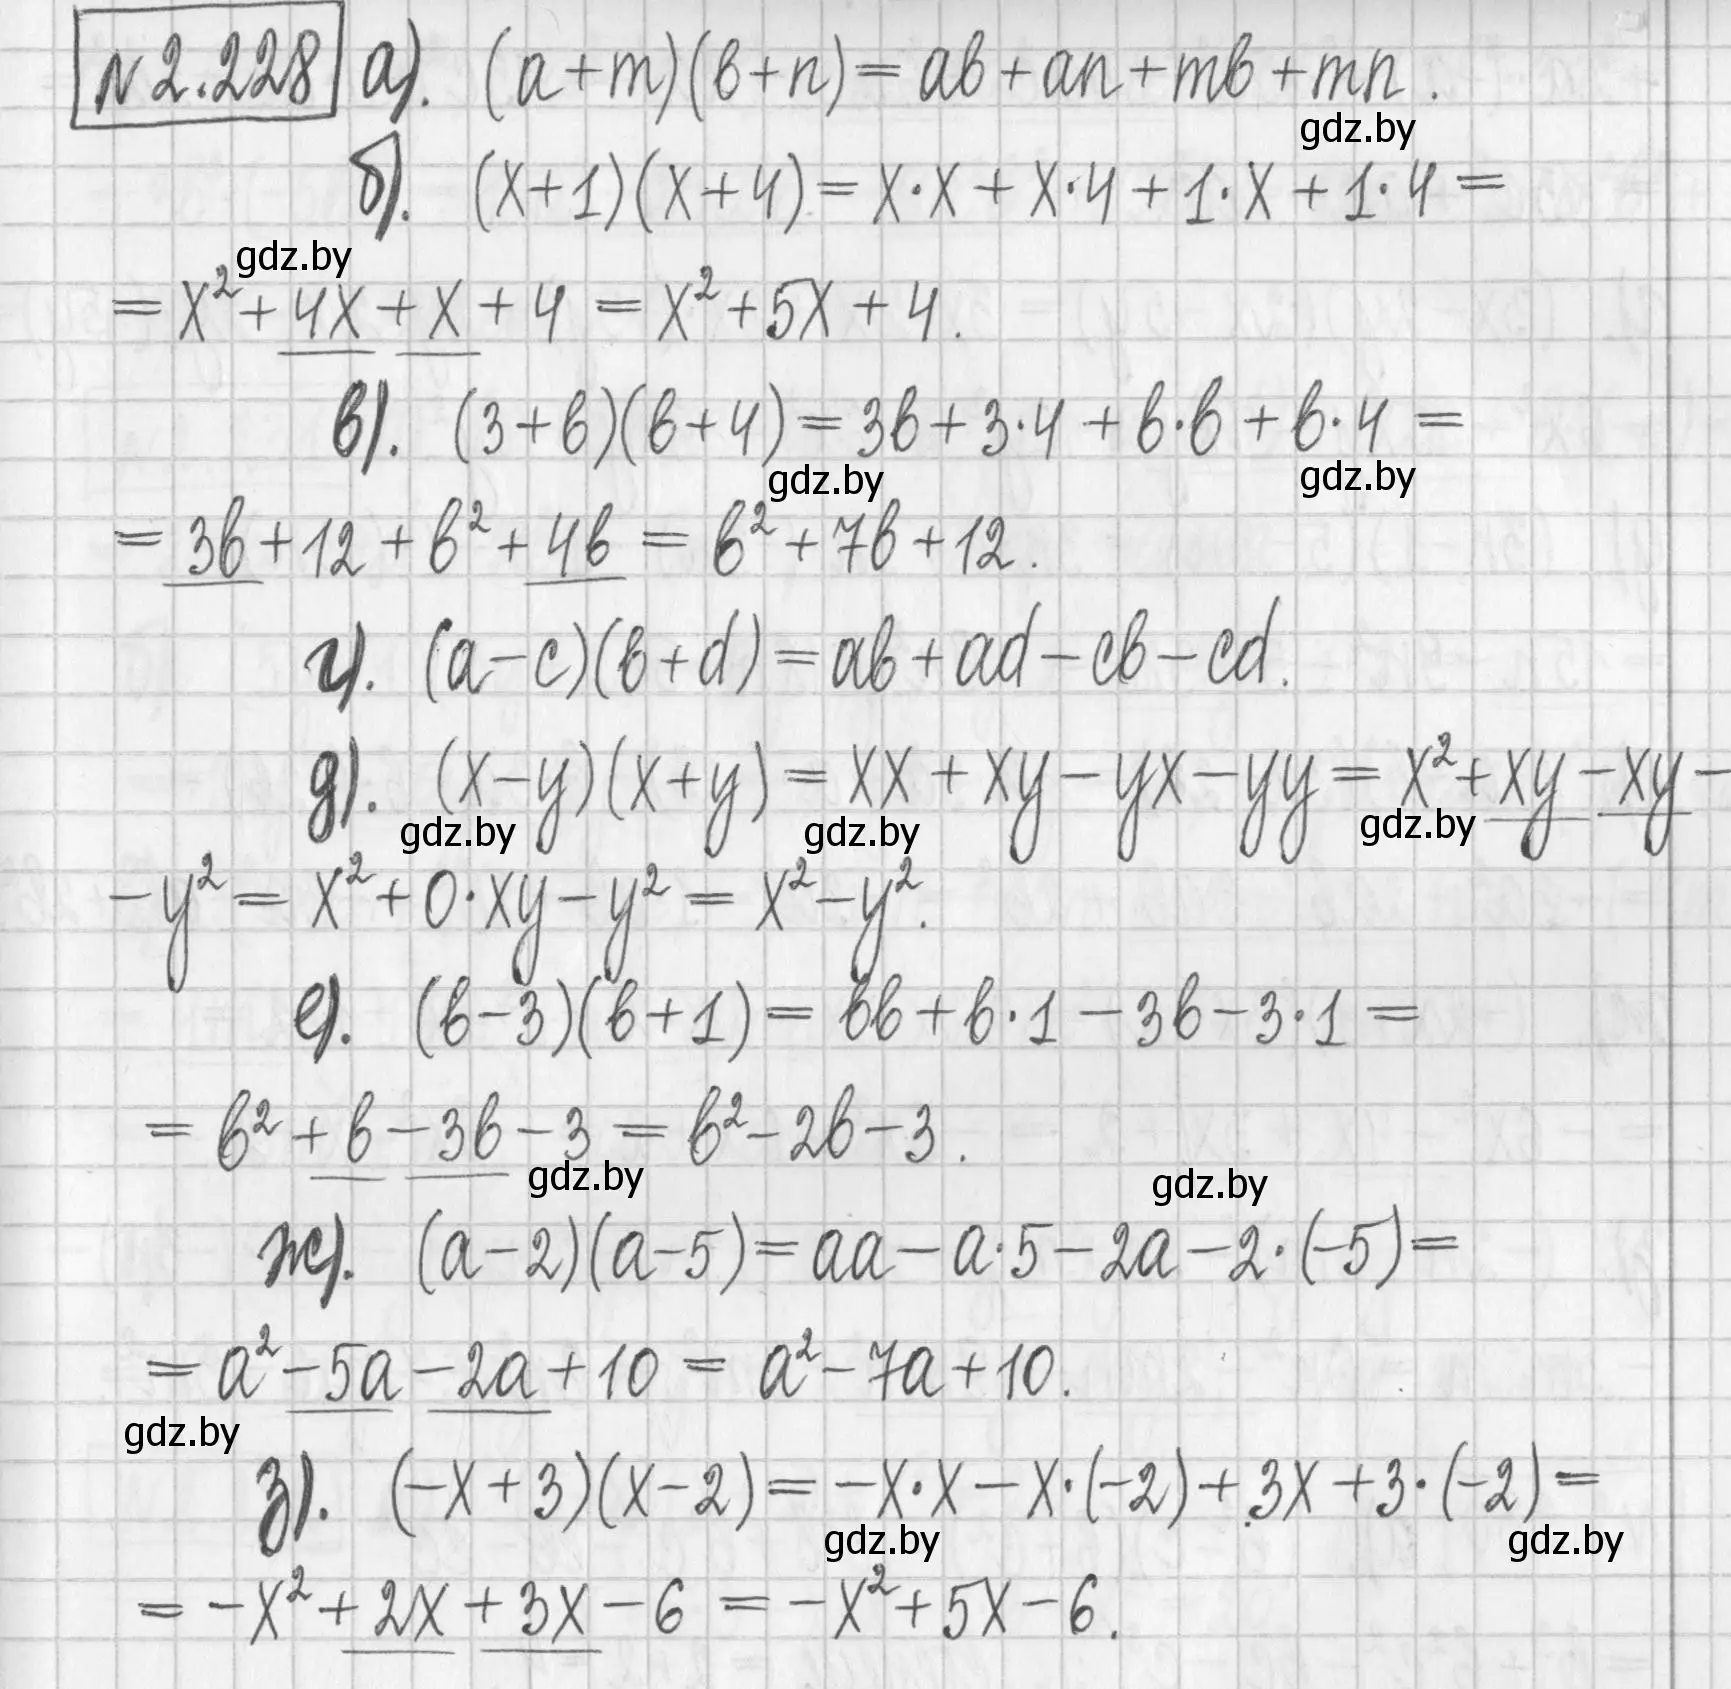 №2.228 а). (a+m)(b+n)=ab+an+mb+mn.
gdz.by
б). (x+1)(x+4)=x·x+x·4+1·x+1·4=
gdz.by
=x²+4x+x+4=x²+5x+4.
в). (3+b)(b+4)=3b+3·4+b·b+b·4=
gdz.by gdz.by
=3b+12+b²+4b=b²+7b+12.
г). (a-c)(b+d)=ab+ad-cb-cd.
д). (x-y)(x+y)=xx+xy-yx-yy=x²+xy-xy-
gdz.by gdz.by gdz.by
-y²=x²+0·xy-y²=x²-y².
е). (b-3)(b+1)=bb+b·1-3b-3·1=
=b²+b-3b-3=b²-2b-3.
gdz.by gdz.by
ж). (a-2)(a-5)=aa-a·5-2a-2·(-5)=
=a²-5a-2a+10=a²-7a+10.
gdz.by
з). (-x+3)(x-2)=-x·x-x·(-2)+3x+3·(-2)=
gdz.by gdz.by
=-x²+2x+3x-6=-x²+5x-6.